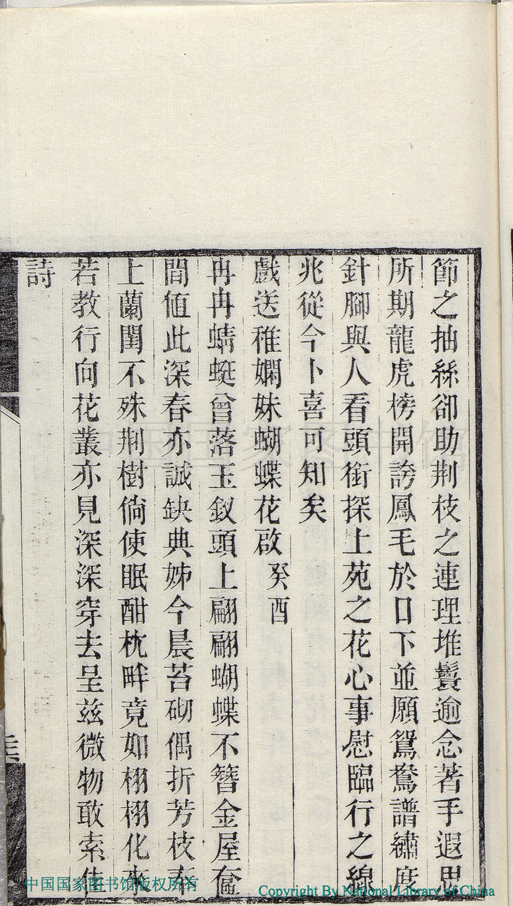 節之抽絲卻助荆枝之連理堆鬟逾念著手遐思
所期龍虎榜開誇鳳毛於日下並願鴛鴦譜繡度
針腳與人看頭銜探上苑之花心事慰臨行之線
兆從今卜喜可知矣
戲送稚嫻妹蝴蝶花啟癸酉
冉冉蜻蜓曾落玉釵頭上翩翩蝴蝶不簪金屋奩
間值此深春亦誠缺典姊今晨苔砌偶折芳枝奉
上蘭閨不殊荆樹倘使眠酣枕畔竟如栩栩化來
若教行向花叢亦見深深穿去呈茲微物敢索佳
詩
中国国家图书馆版权所有
Copyright By National Library of China